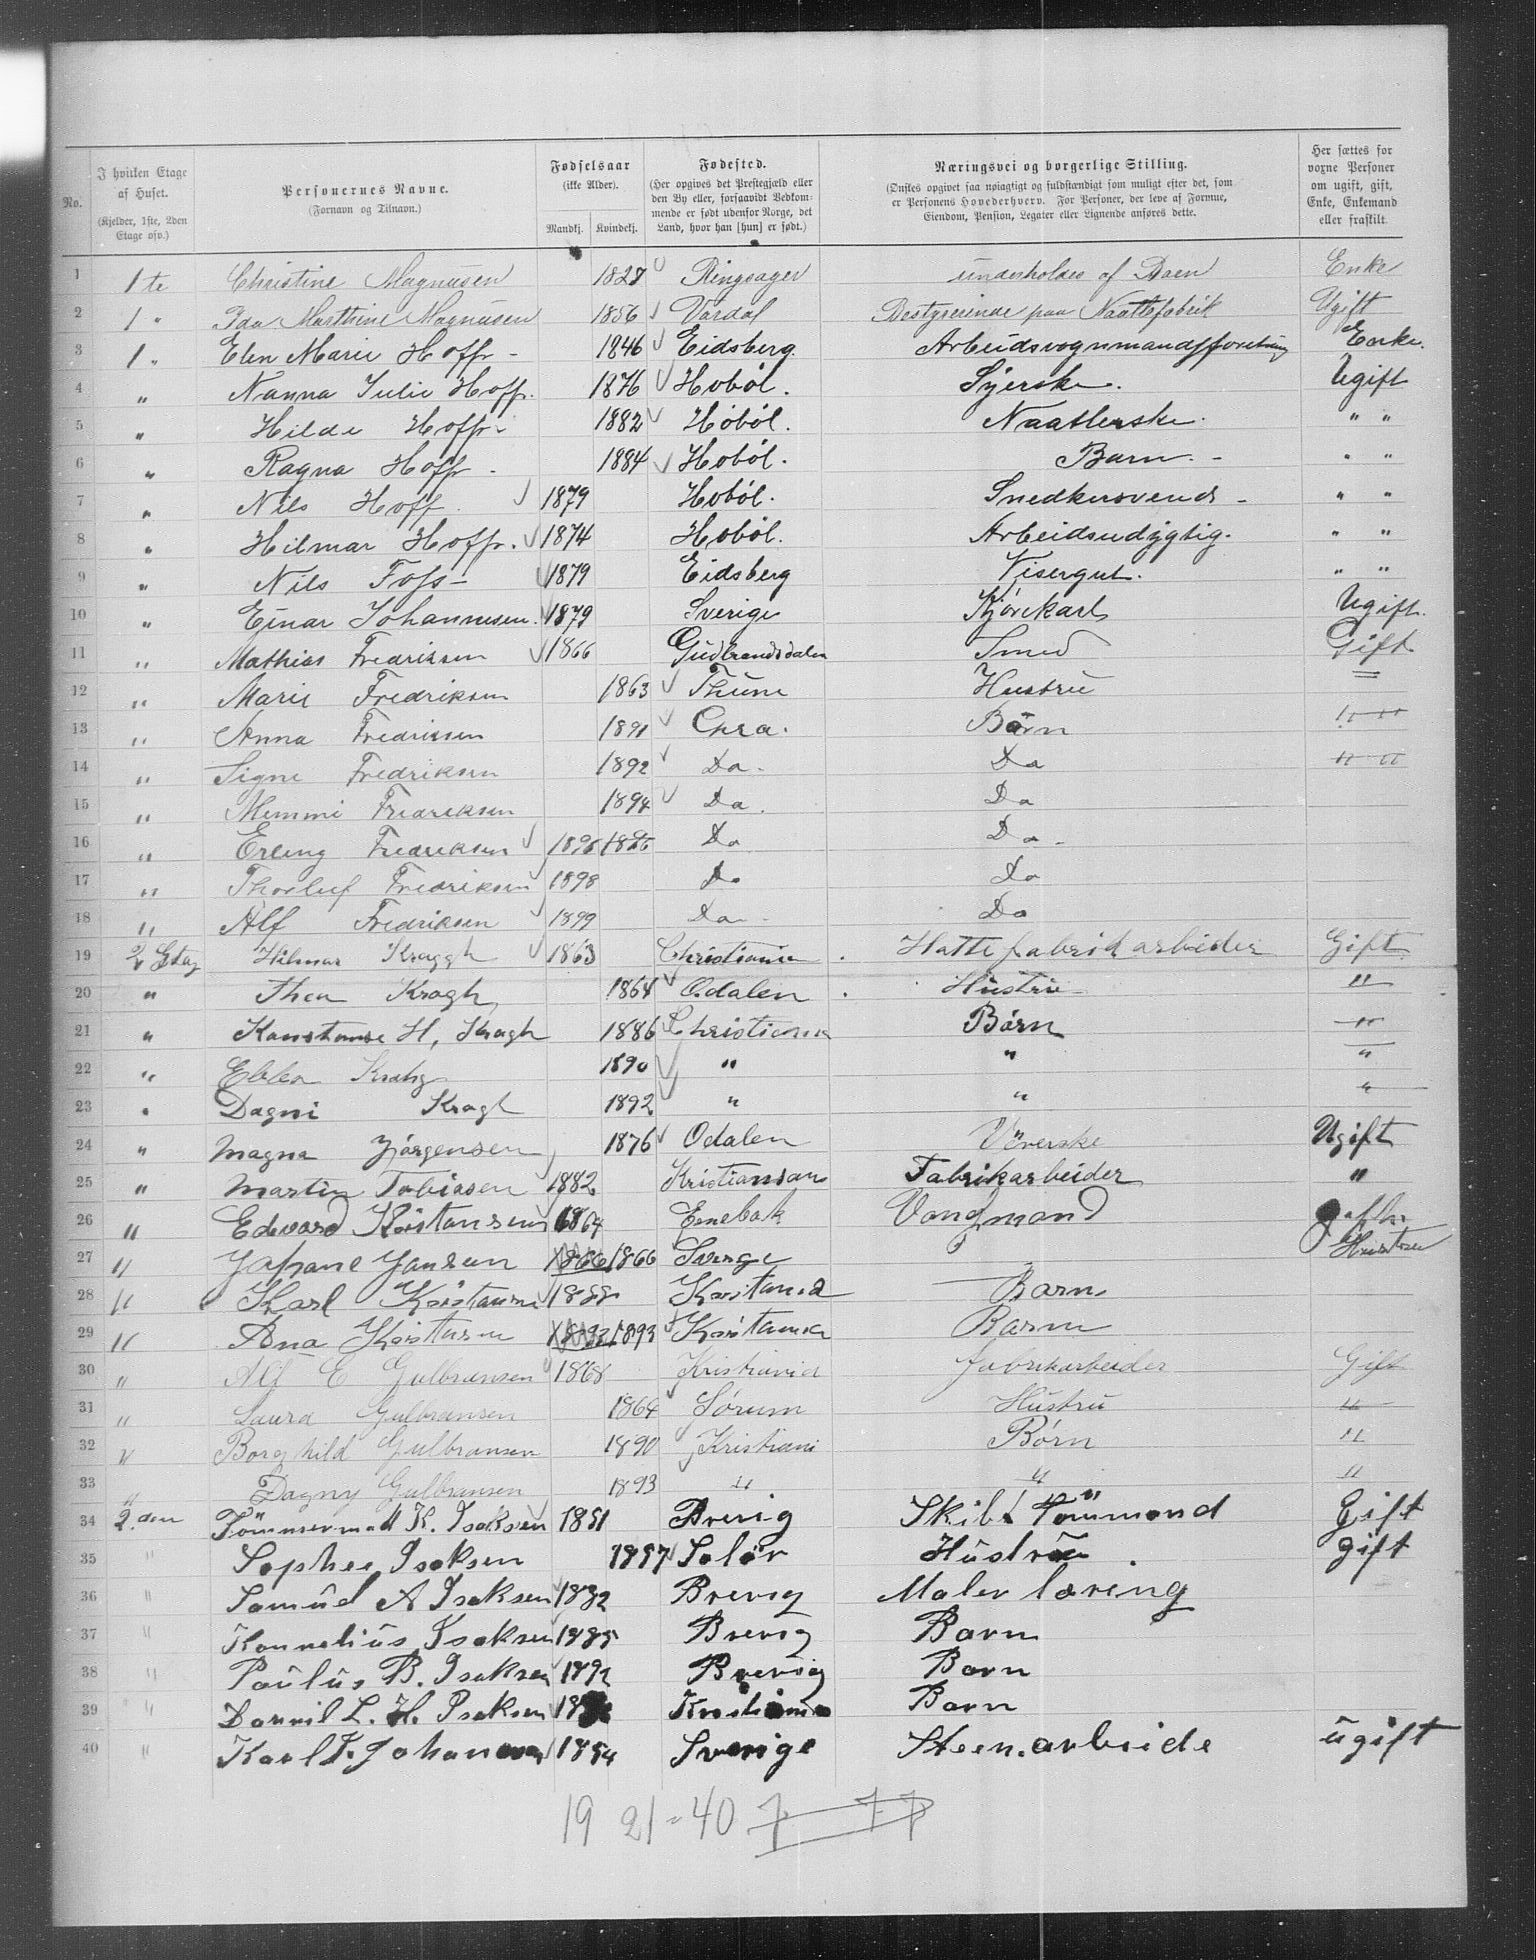 No.
I hvilken Etage af Huset.
(Kjelder, 1ste, 2den Etage osv.)
Personernes Navne.
(Fornavn og Tilnavn.)
Fødselsaar
(ikke Alder).
Mandkj. Kvindekj.
Fødested.
(Her opgives det Prestegjæld eller den By eller, forsaavidt Vedkommende er født udenfor Norge, det Land, hvor han [hun] er født.)
Næringsvei og borgerlige Stilling.
(Ønskes opgivet saa nøiagtigt og fuldstændigt som muligt efter det, som er Personens Hovederhverv. For Personer, der leve af Formue, Eiendom, Pension, Legater eller Lignende anføres dette.
Her sættes for voxne Personer om ugift, gift, Enke, Enkemand eller fraskilt.
1 1 te Christine Magnusen 1828 Ringsager underholdes af Døen Enke
2 1 " Ida Marthine Magnusen 1856 Vardal Bestyrerinde paa Naatlefabrik Ugift
3 1 " Elen Marie Hoff - 1846 Eidsberg. Arbeidsvognmandsforretning Enke.
4 " Nanna Julie Hoff. 1876 Hobøl. Syerske. Ugift
5 " Hilda Hoff - 1882 Hobøl. Naatlerske. " "
6 " Ragna Hoff - 1884 Hobøl. Barn. - " "
7 " Nils Hoff. 1879 Hobøl. Snedkersvend - " "
8 " Hilmar Hoff. 1874 Hobøl. Arbeidsudygtig. " "
9 " Nils Foss - 1879 Eidsberg Visergut. " "
10 " Einar Johannesen. 1879 Sverige Kjørekarl Ugift.
11 " Mathias Fredriksen 1866 Gudbrandsdalen Smed Gift
12 " Marie Fredriksen 1863 Thune Hustru =
13 " Anna Fredriksen 1891 Chra. Børn " "
14 " Signe Fredriksen 1892 Do. Do " "
15 " Memmi Fredriksen 1894 Do. Do
16 " Erling Fredriksen 1896 1896 Do Do -
17 " Thorluf Fredriksen 1898 Do Do
18 " Alf Fredriksen 1899 Do - Do
19 2 Etag Hilmar Kraggh 1863 Christiania . Hattefabrik arbeider Gift
20 " Thea Kragh 1864 Odalen . Hustru "
21 " Konstanse H, Kragh 1886 Christiania Børn "
22 " Ebba Krahg 1890 " " "
23 " Dagni Kragh 1892 " " "
24 " Magna Jørgensen 1876 Odalen Veverske Ugift
25 " Martin Tobiasen 1882 Kristiansan Fabrikarbeider "
26 " Edevard Kristansen 1864 Enebak Vongmand
27 " 1866 1866 Sverge
28 " Karl Kristansen 1888 Kristania Barn
29 " Ana Kristansen 1892 1893 Kristania Barn
30 " Alf E Gulbransen 1868 Kristiania fabrikarbeider Gift
31 " Laura Gulbransen 1864 Sørum Hustru "
32 " Borghild Gulbransen 1890 Kristiani Børn "
33 " Dagny Gulbransen 1893 " " "
34 2.den Tømmermatt K. Isaksen 1851 Brevig Skibs Tømmand Gift
35 " Sophie Isaksen 1857 Solør Hustru . gift
36 " Samuel A Isaksen 1882 Brevig Maler læreng
37 " Kornelius Isaksen 1885 Brevig Barn
38 " Paulus B. Isaksen 1892 Brevig Barn
39 " Daniel L. H. Isaksen Kristiania Barn
40 " Karl F. Johansen 1854 Sverige Steen.arbeide ugift
19 21-40 7 77